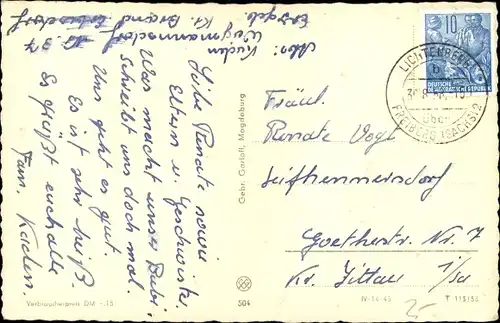 Abs: Kaden
Weigmannsdorf
Kr. Brand Erbisdorf
Erzgeb.
Liebe Renate sowie
Eltern u. Geschwister
Was macht unser Bubi
schreibt uns doch mal.
Uns geht es gut.
Es ist sehr heiß
Es grüßt euch alle
Fam. Kaden.
Gebr. Garloff, Magdeburg
Verbraucherpreis DM -.15
504
IV-14-45
T 115/56
10
DEUTSCHE
DEMOKRATISCHE REPUBLIK
LICHTENBERG
b
über
FREIBERG (SACHS) 2
Fräul.
Renate Vogt
Seifhennersdorf
Goethestr. Nr. 7
Kr. Zittau i/Sa
25